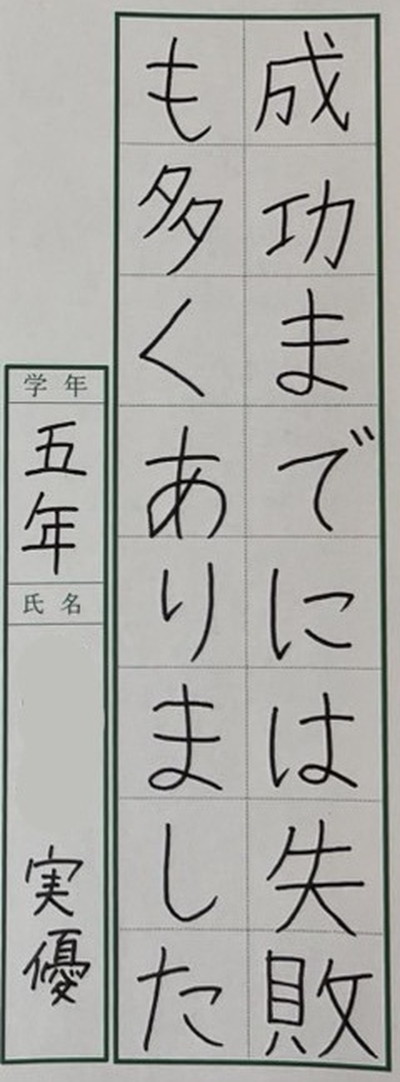 成功までには失敗
も多くありました
学年
五年
氏名
実優